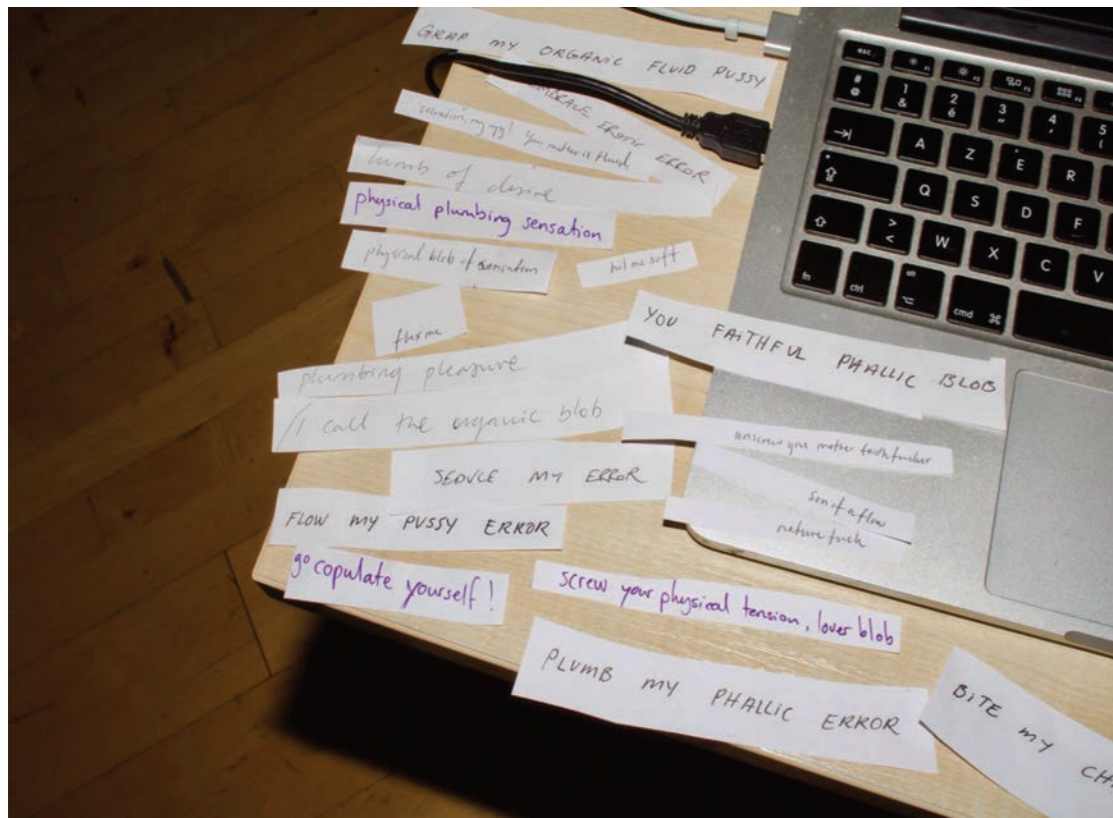 GRAP MY ORGANIC FLUID PUSSY
EROTIC ERROR
salvation, my egg! You mother is fluid
of desire
physical plumbing sensation
physical blob of sensation
hit me soft
flux me
plumbing pleasure
/I call the organic blob
YOU FAITHFUL PHALLIC BLOB
unscrew you mother earth fucker
SEDUCE MY ERROR
son of a flow
nature fuck
FLOW MY PUSSY ERROR
go copulate yourself!
screw your physical tension, lover blob
PLUMB MY PHALLIC ERROR
BITE MY
esc
F1
F2
F3
F4
# @
1 &
2 é
3 "
4 '
5 (
A Z E R
Q S D F
> <
W X C V
fn
ctrl
alt
cmd ⌘